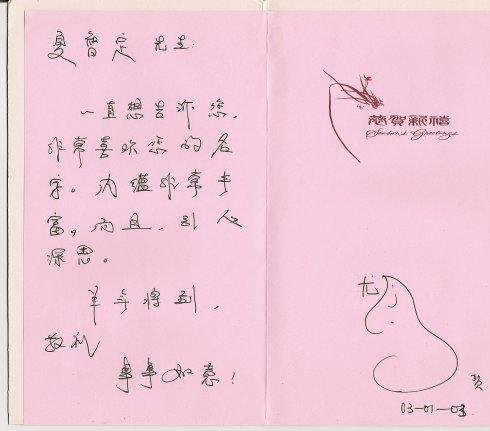 夏雷定 先生:
一直想告诉您,
非常喜欢您的名
字。内蕴非常丰
富,而且,引人
深思。
羊年将到,
敬祝
事事如意!
恭贺新禧
Season's Greetings
尤
03-01-03